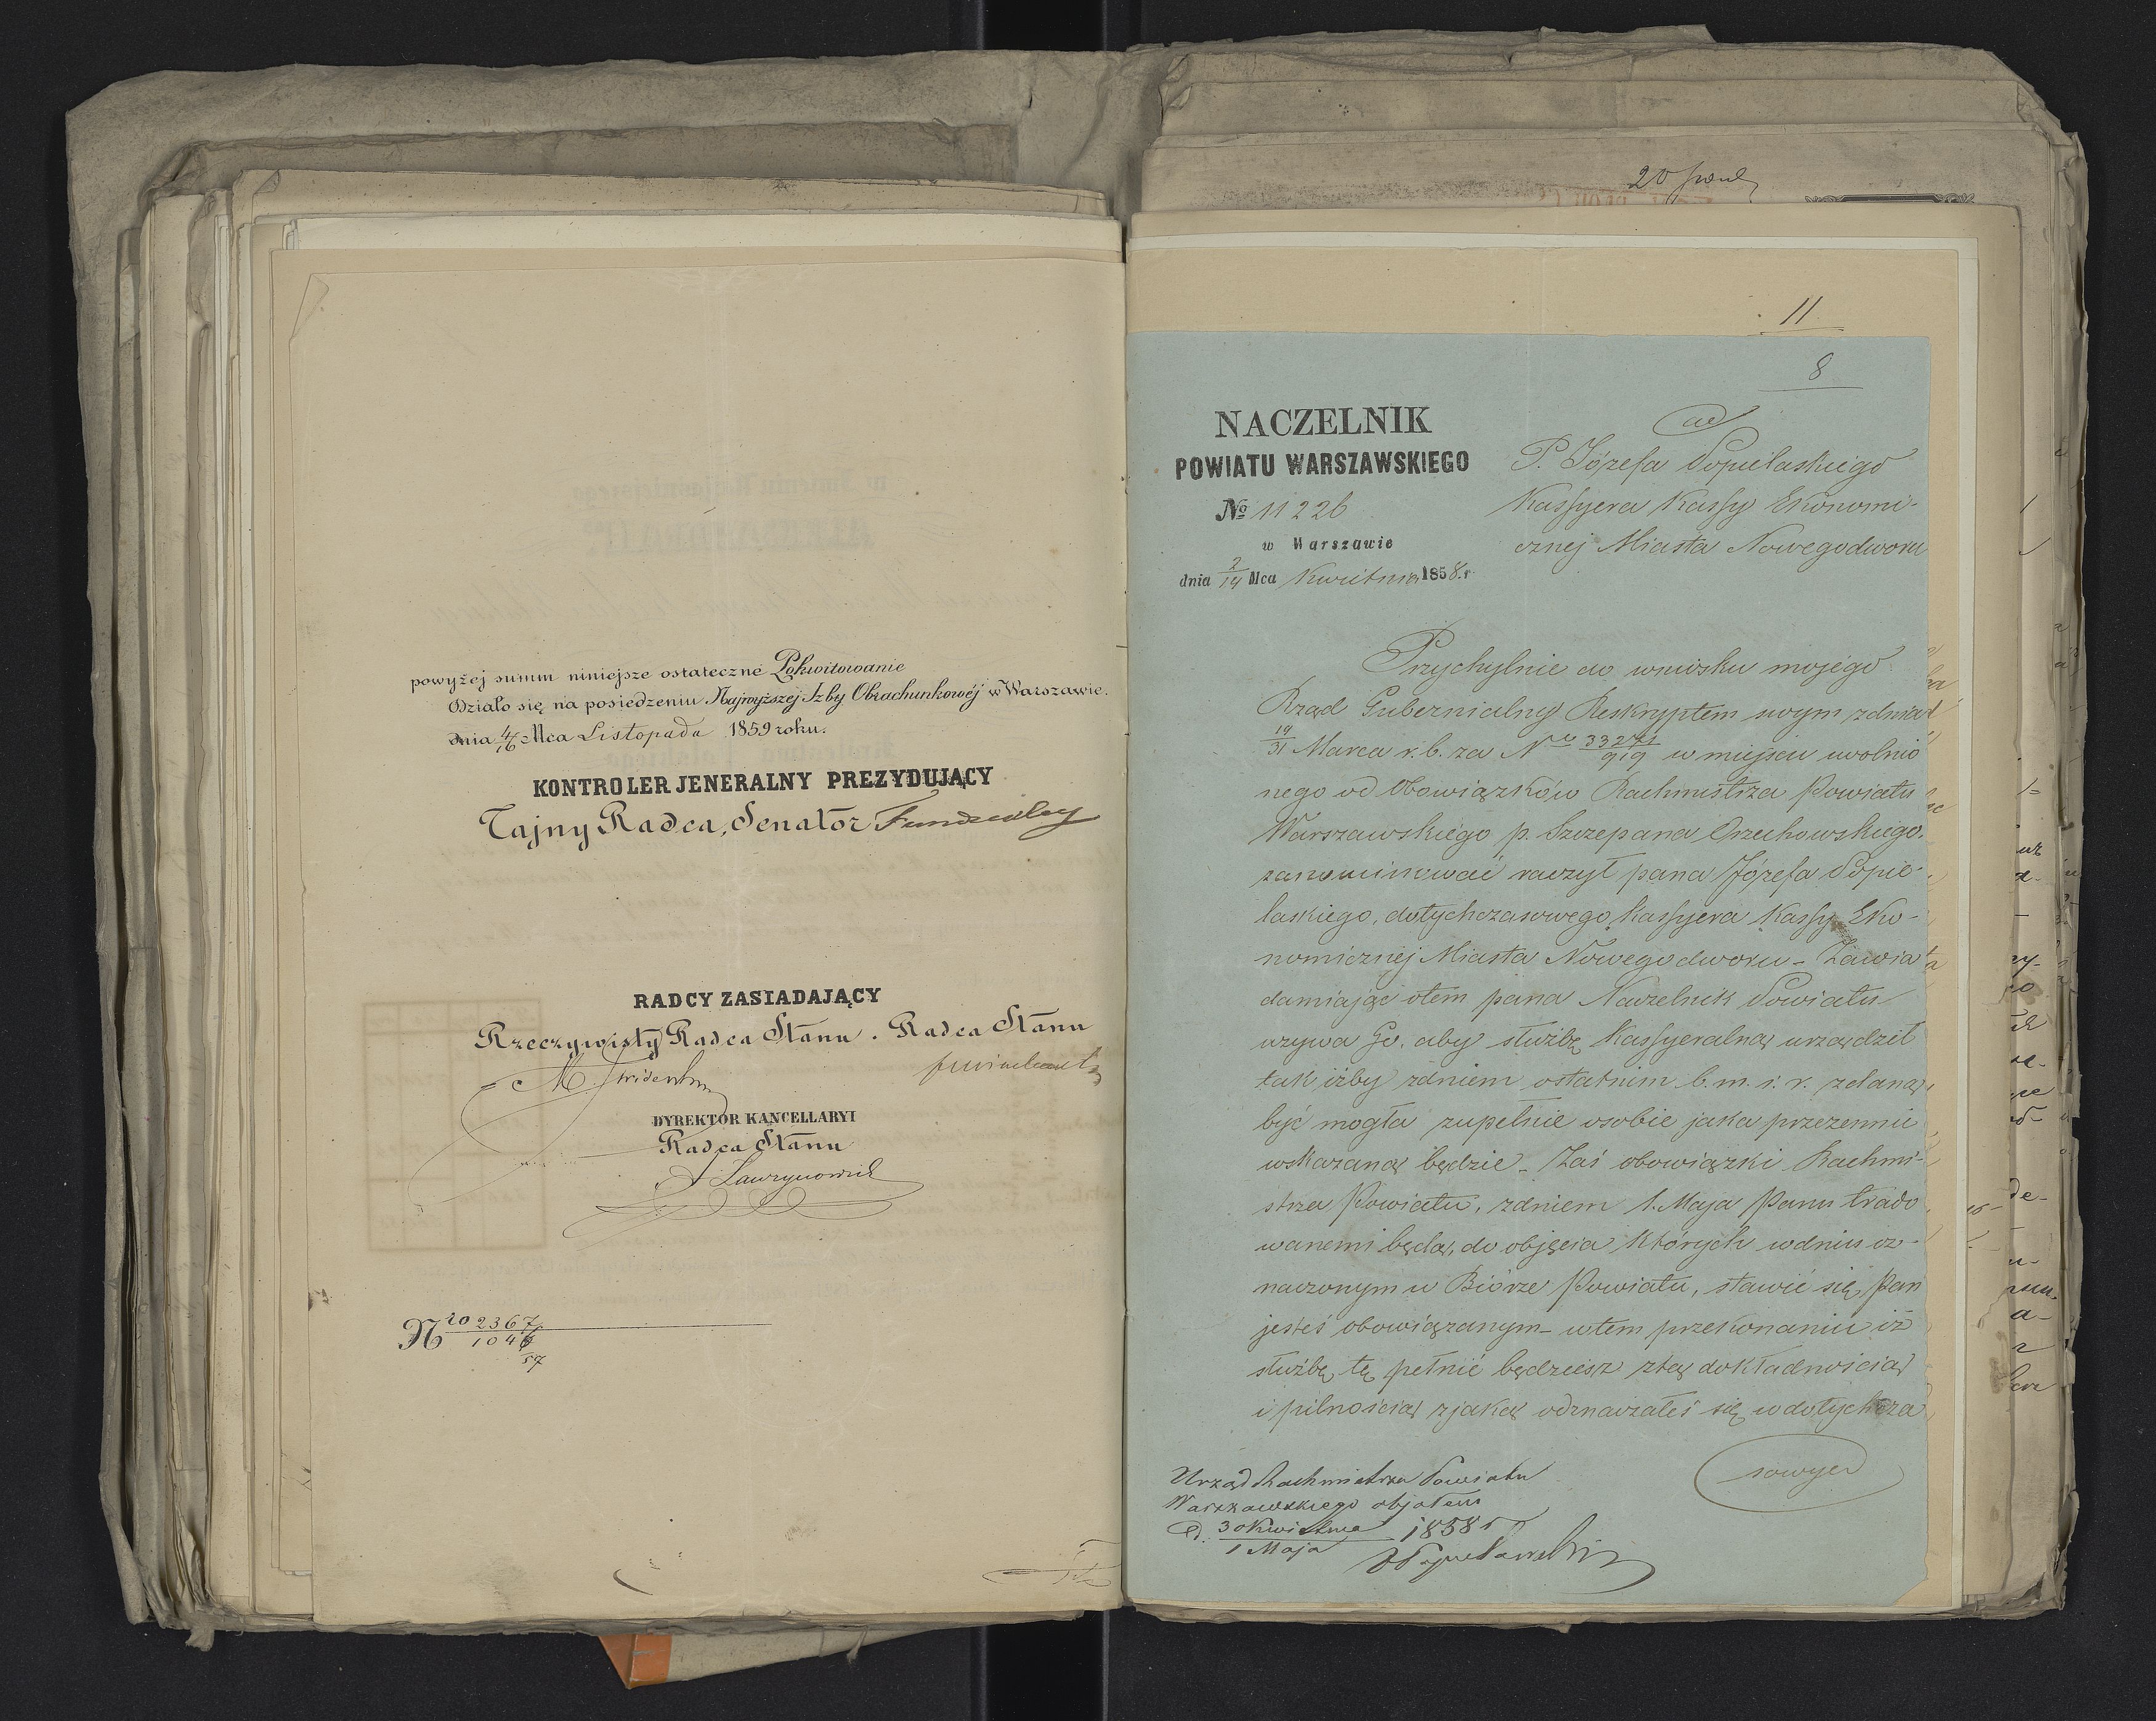 powyżej summ niniejsze ostateczne Pokwitowanie
Działo się na posiedzeniu Najwyższej Izby Obrachunkowéj w Warszawie.
dnia 4/16 Mca Listopada 1859 roku.
KONTROLER JENERALNY PREZYDUJĄCY
Tajny Radca, Senator Fundukley
RADCY ZASIADAJĄCY
Rzeczywisty Radca Stanu . Radca Stanu
DYREKTOR KANCELLARYI
Radca Stanu
A Ławrynowicz
N ro 2367/1046/57
20
11
8
NACZELNIK
POWIATU WARSZAWSKIEGO
No 11226
w Warszawie
dnia 2/14 Mca Kwietnia 1858 r
Do
P. Józefa Popielawskiego
Kassyera Kassy Ekonomi-
cznej Miasta Nowegodworu
Przychylnie do wniosku mojego
Rząd Gubernialny Reskryptem swym z dnia
19/31 Marca r. b. za N 33271/919 w miejsce uwolnio
nego od Obowiązków Rachmistrza Powiatu
Warszawskiego p. Szczepana Orzechowskiego.
zanominować raczył pana Józefa Popie-
lawskiego, dotychczasowego Kassyera Kassy Eko-
nomicznej Miasta Nowegodworu - Zawia
damiając otem pana Naczelnik Powiatu
wzywa Go. aby służbę Kassyeralną urządził
tak iżby z dniem ostatnim b. m. i. r. zdaną
być mogła zupełnie osobie jaka przezemnie
wskazaną będzie - Zaś obowiązki Rachmi-
strza Powiatu, z dniem 1. Maja Panu trado
wanemi będą, do objęcia których w dniu oz-
naczonym w Biórze Powiatu, stawić się Pan
jesteś obowiązanym - w tem przekonaniu iż
służbę tę pełnić będziesz z tą dokładnością
i pilnością z jaką odznaczałeś się w dotychcza
sowym
Urząd Rachmistrza Powiatu
Warszawskiego objąłem
d. 30 Kwietnia/1 Maja 1858 r
JPopielawski